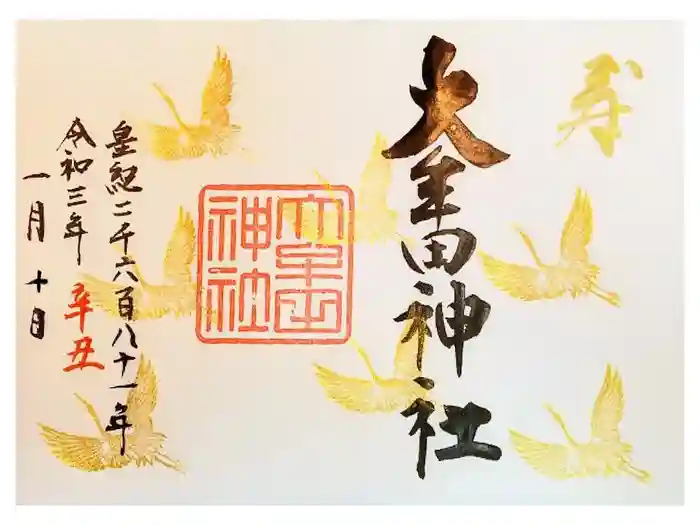 寿
大 神社
神社
皇紀二千六百八十一年
令和三年 辛丑
一月十日